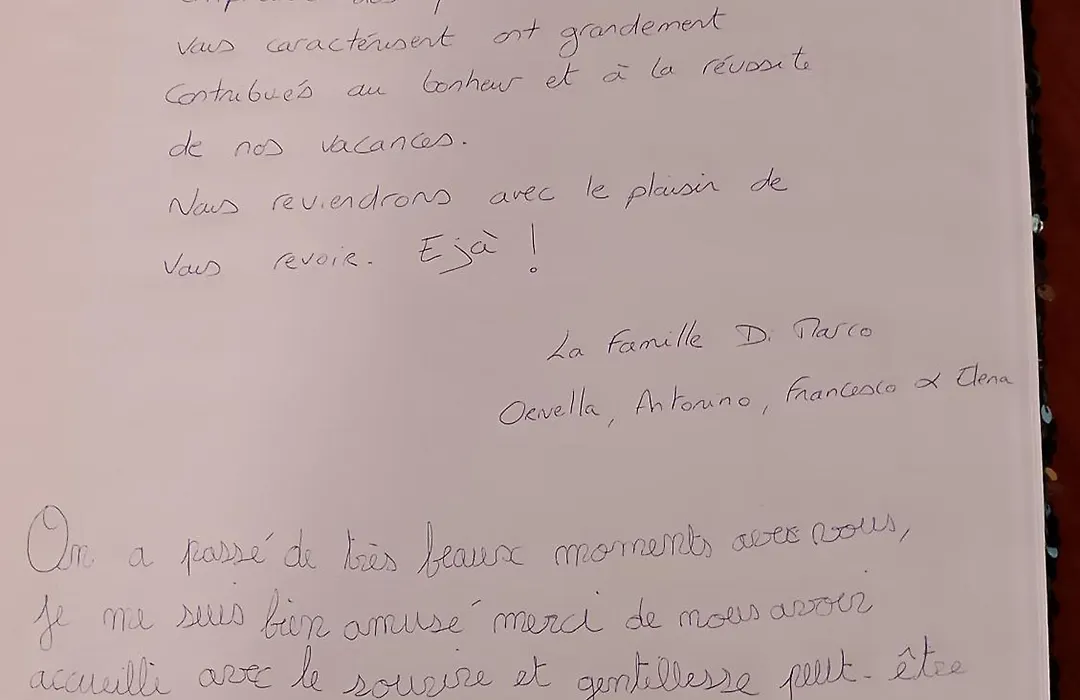 vous caractérisent ont grandement
contribués au bonheur et à la réussite
de nos vacances.
Nous reviendrons avec le plaisir de
vous revoir. Ejà !
La famille Di Marco
Ornella, Antonino, Francesco & Elena
On a passé de très beaux moments avec vous,
je me suis bien amusé merci de nous avoir
accueilli avec le sourire et gentillesse peut-être